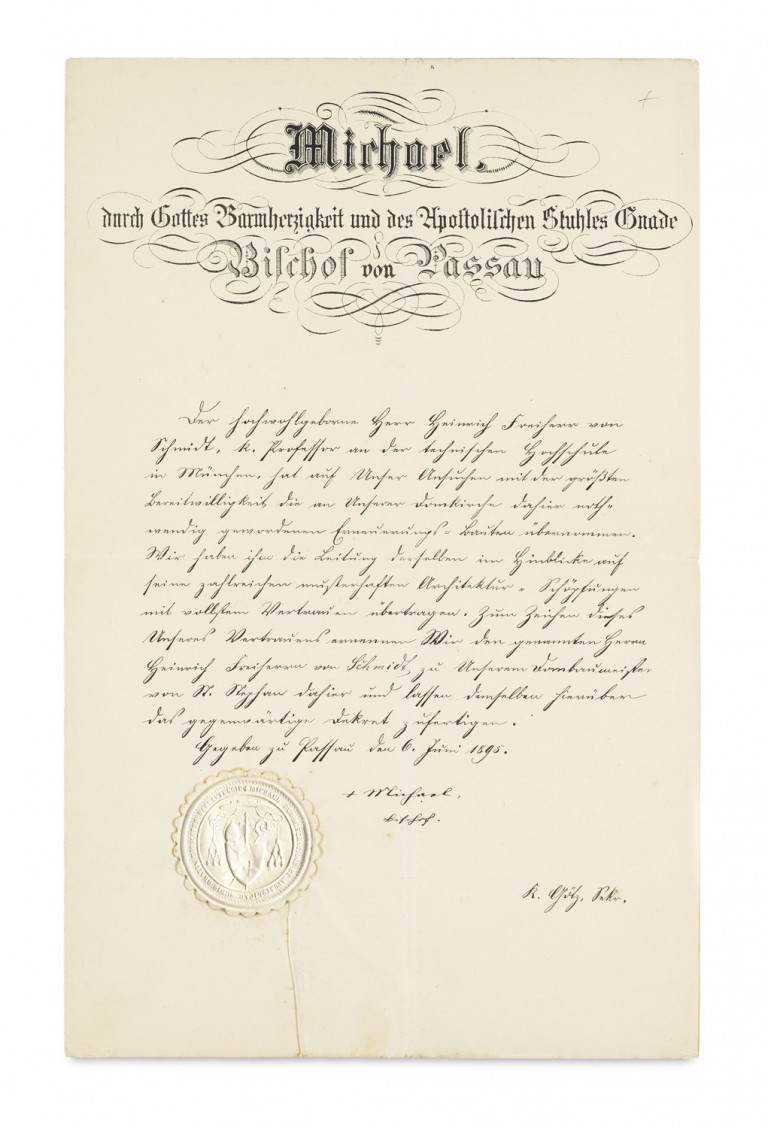 Michael,
durch Gottes Barmherzigkeit und des Apostolischen Stuhles Gnade
Bischof von Passau
Der hochwohlgeborne Herr Heinrich Freiherr von
Schmidt, k. Professor an der technischen Hochschule
in München, hat auf Unser Ansuchen mit der größten
Bereitwilligkeit die an Unserer Domkirche dahier noth-
wendig gewordenen Erneuerungs-Bauten übernommen.
Wir haben ihm die Leitung derselben im Hinblicke auf
seine zahlreichen musterhaften Architektur-Schöpfungen
mit vollstem Vertrauen übertragen. Zum Zeichen dieses
Unseres Vertrauens ernennen Wir den genannten Herrn
Heinrich Freiherrn von Schmidt zu Unserem Dombaumeister
von St. Stephan dahier und lassen demselben hierüber
das gegenwärtige Dekret zufertigen.
Gegeben zu Passau den 6. Juni 1895.
+ Michael,
Bischof.
K. Götz, Sekr.
MICHAEL